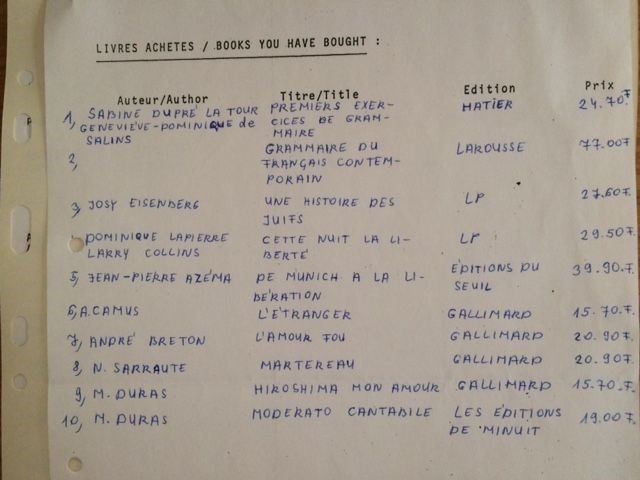 LIVRES ACHETES / BOOKS YOU HAVE BOUGHT :
Auteur/Author Titre/Title Edition Prix
1, SABINE DUPRÉ LA TOUR PREMIERS EXER- HATIER 24.70.F
GENEVIÈVE-DOMINIQUE de CICES DE GRAM-
SALINS MAIRE
2, GRAMMAIRE DU LAROUSSE 77.00F
FRANÇAIS CONTEM-
PORAIN
3, JOSY EISENBERG UNE HISTOIRE DES LP 27.60F
JUIFS
DOMINIQUE LAPIERRE CETTE NUIT LA LI- LP 29.50F
LARRY COLLINS BERTÉ
5, JEAN-PIERRE AZÉMA DE MUNICH A LA LI- EDITIONS DU 39.90.F.
BÉRATION SEUIL
6, A.CAMUS L'ÉTRANGER GALLIMARD 15.70.F.
7, ANDRÉ BRETON L'AMOUR FOU GALLIMARD 20.90F.
8, N. SARRAUTE MARTEREAU GALLIMARD 20.90F.
9, M. DURAS HIROSHIMA MON AMOUR GALLIMARD 15.70.F.
10, M. DURAS MODERATO CANTABILE LES ÉDITIONS 19.00F.
DE MINUIT